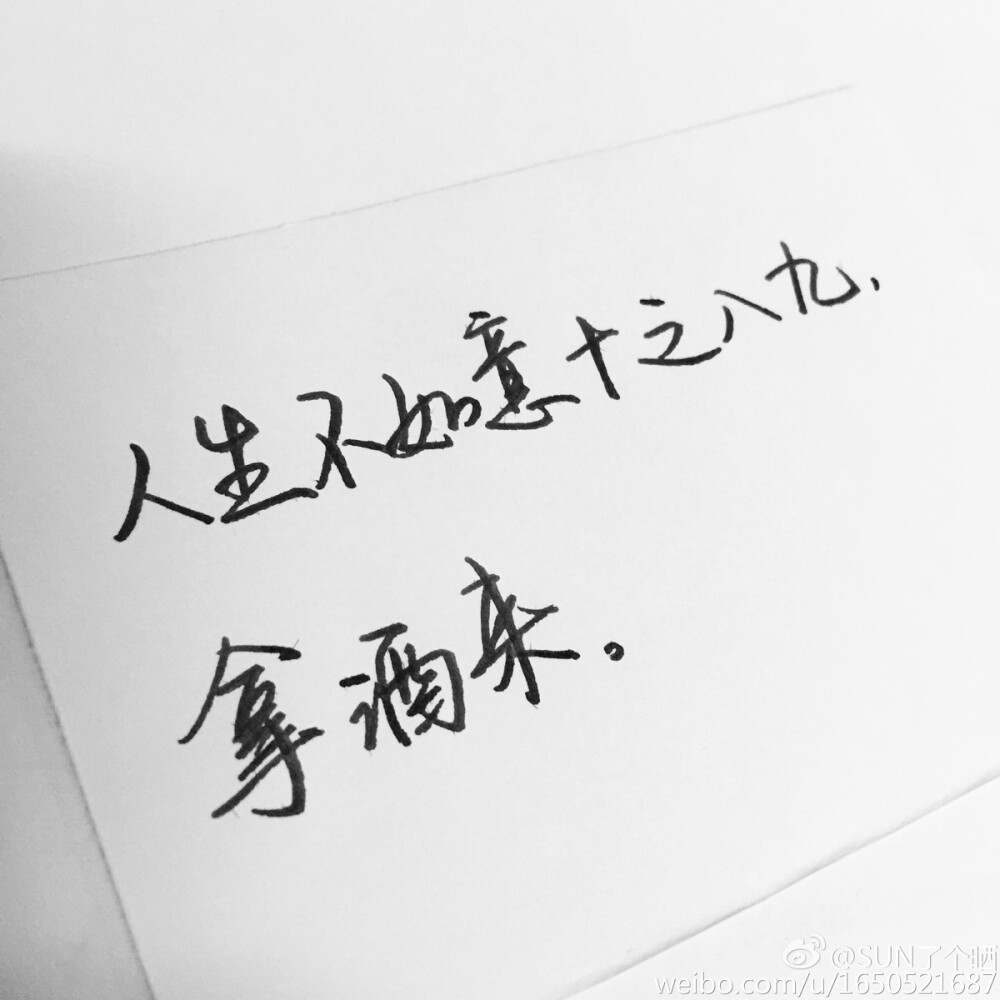 人生不如意十之八九,
拿酒来。
@SUN了个晒
weibo.com/u/1650521687